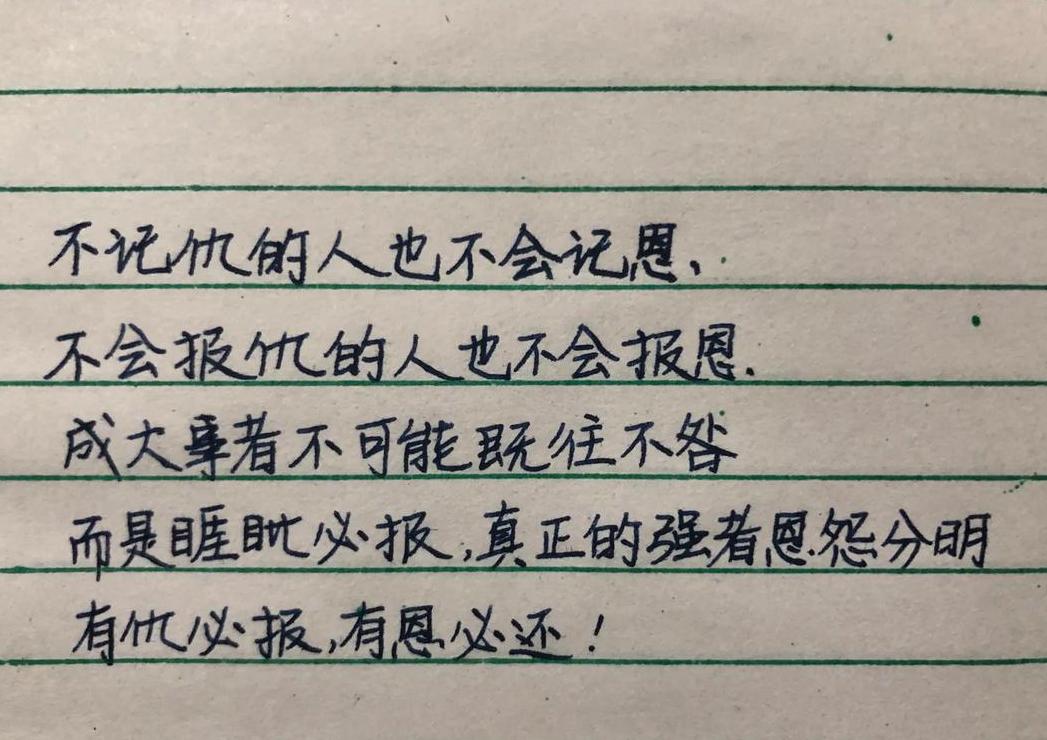 不记仇的人也不会记恩、
不会报仇的人也不会报恩.
成大事者不可能既往不咎
而是睚眦必报,真正的强者恩怨分明
有仇必报,有恩必还!